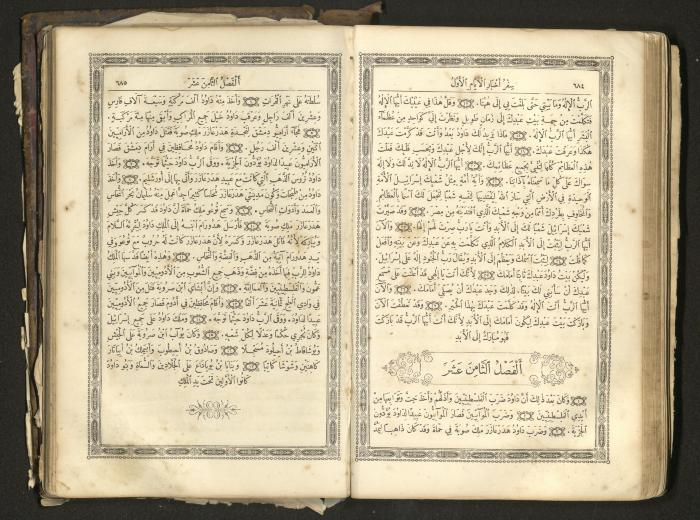 ٦٨٤ سِفْرُ أَخْبَارِ الْأَيَّامِ الْأَوَّلُ
الرَّبُّ الْإِلٰهُ وَمَا بَيْتِي حَتَّى بَلَغْتَ بِي إِلَى هُنَا. وَقَلَّ هٰذَا فِي عَيْنَيْكَ أَيُّهَا الْإِلٰهُ
فَتَكَلَّمْتَ مِنْ جِهَةِ بَيْتِ عَبْدِكَ إِلَى زَمَانٍ طَوِيلٍ وَنَظَرْتَ إِلَيَّ كَوَاحِدٍ مِنْ عُظَمَاءِ
الْبَشَرِ أَيُّهَا الرَّبُّ الْإِلٰهُ. مَاذَا يَزِيدُ لَكَ دَاوُدُ بَعْدُ وَأَنْتَ قَدْ كَرَّمْتَ عَبْدَكَ
هٰكَذَا وَعَرَفْتَ عَبْدَكَ. أَيُّهَا الرَّبُّ إِنَّكَ لِأَجْلِ عَبْدِكَ وَبِحَسَبِ قَلْبِكَ فَعَلْتَ
هٰذِهِ الْعَظَائِمَ كُلَّهَا لِتُبَيِّنَ جَمِيعَ عَظَائِمِكَ. أَيُّهَا الرَّبُّ الْإِلٰهُ لَا نِدَّ لَكَ وَلَا إِلٰهَ
سِوَاكَ عَلَى كُلِّ مَا سَمِعْنَاهُ بِآذَانِنَا. وَأَيَّةُ أُمَّةٍ مِثْلُ شَعْبِكَ إِسْرَائِيلَ الْأُمَّةِ
الْوَحِيدَةِ فِي الْأَرْضِ الَّتِي سَارَ اللهُ لِيَفْتَدِيَهَا لِنَفْسِهِ شَعْبًا تَجْعَلُ لَكَ اسْمًا بِالْعَظَائِمِ
وَالْمَخَاوِفِ بِطَرْدِكَ أُمَمًا مِنْ وَجْهِ شَعْبِكَ الَّذِي افْتَدَيْتَهُ مِنْ مِصْرَ. وَقَدْ صَيَّرْتَ
شَعْبَكَ إِسْرَائِيلَ شَعْبًا لَكَ إِلَى الْأَبَدِ وَأَنْتَ يَا رَبُّ صِرْتَ لَهُمْ إِلٰهًا. وَالْآنَ
أَيُّهَا الرَّبُّ لِيَثْبُتْ إِلَى الْأَبَدِ الْكَلَامُ الَّذِي تَكَلَّمْتَ بِهِ عَنْ عَبْدِكَ وَعَنْ بَيْتِهِ وَافْعَلْ
كَمَا قُلْتَ. لِيَثْبُتِ اسْمُكَ وَيَعْظُمْ إِلَى الْأَبَدِ وَيُقَالَ رَبُّ الْجُنُودِ إِلٰهٌ عَلَى إِسْرَائِيلَ.
وَلْيَكُنْ بَيْتُ دَاوُدَ عَبْدِكَ ثَابِتًا أَمَامَكَ. لِأَنَّكَ أَنْتَ يَا إِلٰهِي قَدْ أَعْلَنْتَ عَلَى سَمْعِ
عَبْدِكَ أَنْ سَأَبْنِي لَكَ بَيْتًا. لِذٰلِكَ وَجَدَ عَبْدُكَ أَنْ يُصَلِّيَ أَمَامَكَ. وَالْآنَ
أَيُّهَا الرَّبُّ أَنْتَ الْإِلٰهُ وَقَدْ كَلَّمْتَ عَبْدَكَ بِهٰذَا الْخَيْرِ. وَقَدْ عَطَفْتَ الْآنَ
وَبَارَكْتَ بَيْتَ عَبْدِكَ لِيَكُونَ أَمَامَكَ إِلَى الْأَبَدِ لِأَنَّكَ أَنْتَ أَيُّهَا الرَّبُّ قَدْ بَارَكْتَ
فَهُوَ مُبَارَكٌ إِلَى الْأَبَدِ
أَلْفَصْلُ الثَّامِنَ عَشَرَ
وَكَانَ بَعْدَ ذٰلِكَ أَنَّ دَاوُدَ ضَرَبَ الْفِلَسْطِينِيِّينَ وَأَذَلَّهُمْ وَأَخَذَ جَتَّ وَتَوَابِعَهَا مِنْ
أَيْدِي الْفِلَسْطِينِيِّينَ. وَضَرَبَ الْمُوآبِيِّينَ فَصَارَ الْمُوآبِيُّونَ عَبِيدًا لِدَاوُدَ يُؤَدُّونَ
الْجِزْيَةَ. وَضَرَبَ دَاوُدُ هَدَرَ عَازَرَ مَلِكَ صُوبَةَ فِي حَمَاةَ وَقَدْ كَانَ ذَاهِبًا لِيَمُدَّ
أَلْفَصْلُ الثَّامِنَ عَشَرَ ٦٨٥
سُلْطَتَهُ عَلَى نَهْرِ الْفُرَاتِ. وَأَخَذَ مِنْهُ دَاوُدُ أَلْفَ مَرْكَبَةٍ وَسَبْعَةَ آلَافِ فَارِسٍ
وَعِشْرِينَ أَلْفَ رَاجِلٍ وَعَرْقَبَ دَاوُدُ خَيْلَ جَمِيعِ الْمَرَاكِبِ وَأَبْقَى مِنْهَا مِئَةَ مَرْكَبَةٍ.
فَجَاءَ أَرَامِيُّو دِمَشْقَ لِنَجْدَةِ هَدَرَ عَازَرَ مَلِكِ صُوبَةَ فَقَتَلَ دَاوُدُ مِنَ الْأَرَامِيِّينَ
اثْنَيْنِ وَعِشْرِينَ أَلْفَ رَجُلٍ. وَأَقَامَ دَاوُدُ مُحَافِظِينَ فِي أَرَامِ دِمَشْقَ فَصَارَ
الْأَرَامِيُّونَ عَبِيدًا لِدَاوُدَ يُؤَدُّونَ الْجِزْيَةَ. وَوَقَى الرَّبُّ دَاوُدَ حَيْثُمَا تَوَجَّهَ. وَأَخَذَ
دَاوُدُ تُرُوسَ الذَّهَبِ الَّتِي كَانَتْ مَعَ عَبِيدِ هَدَرَ عَازَرَ وَأَتَى بِهَا إِلَى أُورَشَلِيمَ. وَأَخَذَ
دَاوُدُ مِنْ طَبْحَاتَ وَكُونَ مَدِينَتَيْ هَدَرَ عَازَرَ نُحَاسًا كَثِيرًا جِدًّا عَمِلَ مِنْهُ سُلَيْمَانُ بَحْرَ النُّحَاسِ
وَالْعُمُدَ وَأَدَوَاتِ النُّحَاسِ. وَسَمِعَ تُوعُو مَلِكُ حَمَاةَ أَنَّ دَاوُدَ قَدْ كَسَرَ كُلَّ جَيْشِ
هَدَرَ عَازَرَ مَلِكِ صُوبَةَ. فَأَرْسَلَ هَدُورَامَ ابْنَهُ إِلَى الْمَلِكِ دَاوُدَ لِيُقْرِئَهُ السَّلَامَ
وَيُبَارِكَهُ لِأَنَّهُ قَاتَلَ هَدَرَ عَازَرَ وَكَسَرَهُ لِأَنَّ هَدَرَ عَازَرَ كَانَتْ لَهُ حُرُوبٌ مَعَ تُوعُو وَفِي
يَدِ هَدُورَامَ آنِيَةٌ مِنَ الذَّهَبِ وَالْفِضَّةِ وَالنُّحَاسِ. وَهٰذِهِ أَيْضًا قَدَّسَهَا الْمَلِكُ
دَاوُدُ لِلرَّبِّ مَعَ مَا أَخَذَهُ مِنْ فِضَّةٍ وَذَهَبٍ مِنْ جَمِيعِ الشُّعُوبِ مِنَ الْأَدُومِيِّينَ وَالْمُوآبِيِّينَ وَبَنِي
عَمُّونَ وَالْفِلَسْطِينِيِّينَ وَالْعَمَالِقَةِ. وَإِنَّ أَبِيشَايَ ابْنَ صَرُويَةَ قَتَلَ مِنَ الْأَدُومِيِّينَ
فِي وَادِي الْمِلْحِ ثَمَانِيَةَ عَشَرَ أَلْفًا. وَأَقَامَ مُحَافِظِينَ فِي أَدُومَ فَصَارَ جَمِيعُ الْأَدُومِيِّينَ
عَبِيدًا لِدَاوُدَ. وَوَقَى الرَّبُّ دَاوُدَ حَيْثُمَا تَوَجَّهَ. وَمَلَكَ دَاوُدُ عَلَى جَمِيعِ إِسْرَائِيلَ
وَكَانَ يُجْرِي حُكْمًا وَعَدْلًا لِكُلِّ شَعْبِهِ. وَكَانَ يُوآبُ ابْنُ صَرُويَةَ عَلَى الْجَيْشِ
وَيُوشَافَاطُ بْنُ أَحِيلُودَ مُسَجِّلًا. وَصَادُوقُ بْنُ أَحِيطُوبَ وَأَبِيمَلِكُ بْنُ أَبِيَاتَارَ
كَاهِنَيْنِ وَشَوْشَا كَاتِبًا. وَبَنَايَا بْنُ يُويَادَاعَ عَلَى الْجَلَّادِينَ وَالسُّعَاةِ وَبَنُو دَاوُدَ
كَانُوا الْأَوَّلِينَ تَحْتَ يَدِ الْمَلِكِ